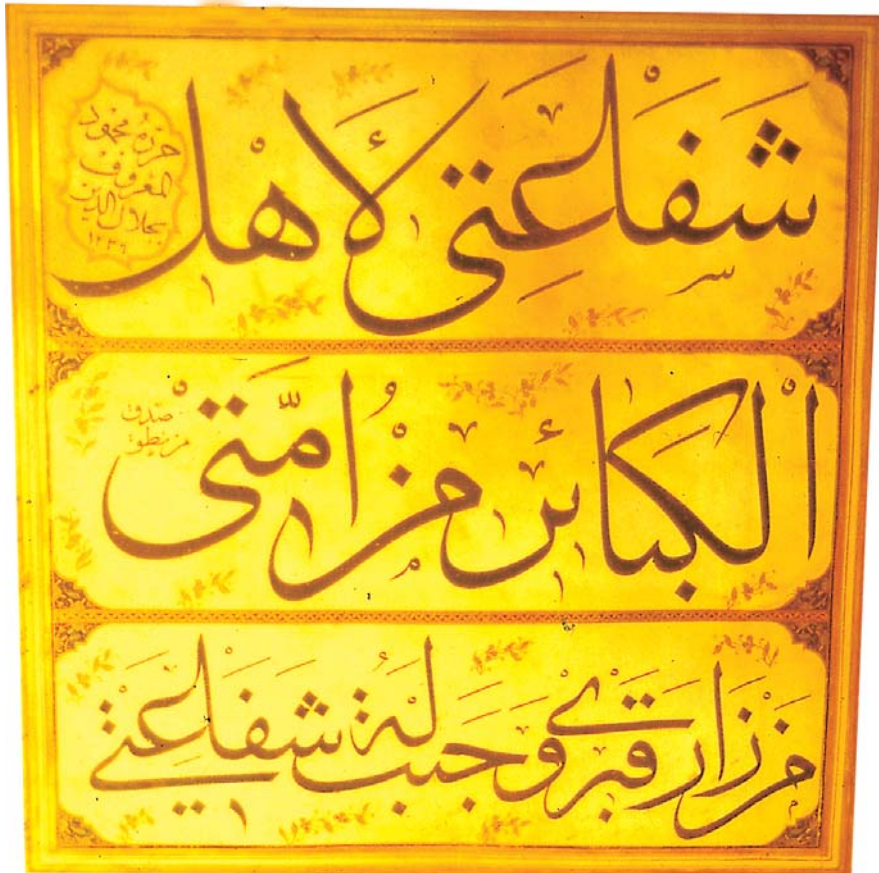 شَفَاعَتِي لِأَهْلِ
حرره محمود
المعروف
بجلال الدين
١٢٣٦
الْكَبَائِرِ مِنْ أُمَّتِي
صدق
من نطق
مَنْ زَارَ قَبْرِي وَجَبَتْ لَهُ شَفَاعَتِي